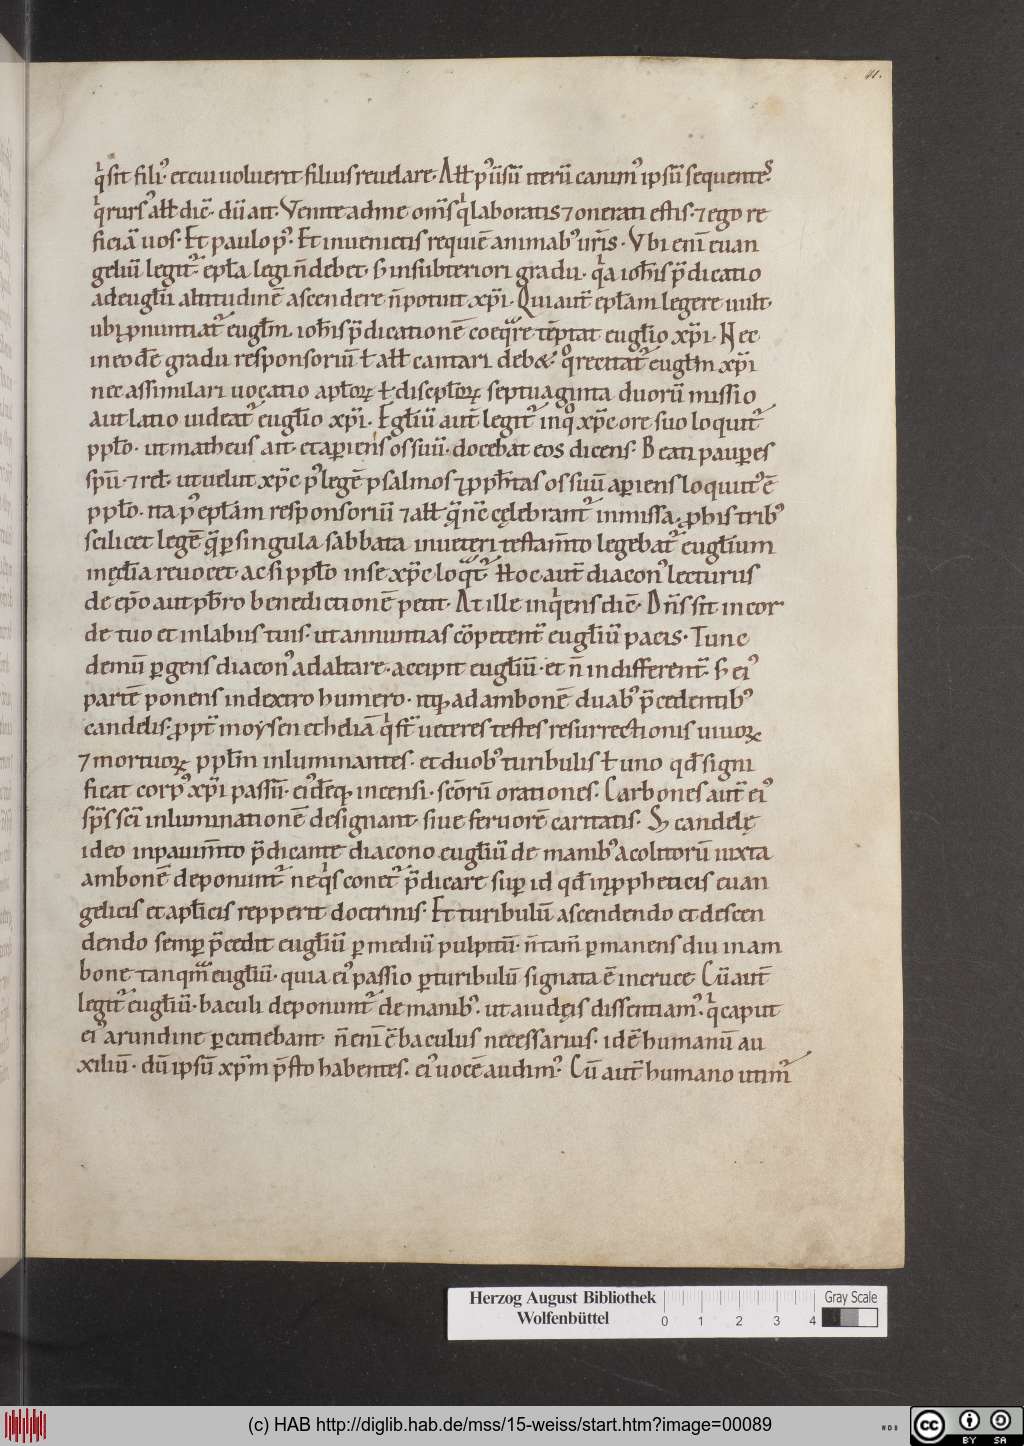 41.
q̍ sit fili᷒· et cui uoluerit filius reuelare· All̄ p᷒ u̅su̅ iteru̅ canim᷒ ipsu̅ sequente᷒s·
q̍ rurs᷒ all̄ dic̅· du̅ ait· Venite ad me om̅s q̍ laboratis ⁊ onerati estis· ⁊ ego re
ficia̅ uos· Et paulo p᷒· Et inuenietis requie̅ animab᷒ ur̅is· Vbi eni̅ euan
geliu̅ legit᷑· epl̅a legi n̅ debet· s̅ in subteriori gradu· q̍a ioh̅is p̅dicatio
ad eugl̅ii altitudine̅ ascendere n̅ potuit xp̅i· Qui aut̅ epl̅am legere uult·
ubi ꝓnuntiat᷑ eugl̅m· ioh̅is p̅dicatione̅ coeq̅re te̅ptat eugl̅io xp̅i· Nec
in eode̅ gradu responsoriu̅ ł all̄ cantari deb&· q̊ recitat᷑ eugl̅m xp̅i
nec assimilari uocatio apl̅oꝝ ł discipl̅oꝝ septuaginta duoru̅ missio
aut latio uideat᷑ eugl̅io xp̅i· Egl̅iu̅ aut̅ legit᷑ in q̊ xp̅c ore suo loquit᷑
ppl̅o· ut matheus ait· et aꝑiens os suu̅· docebat eos dicens· Beati pauꝑes
sp̅u· ⁊ rel̅· ut uelut xp̅c p᷒ lege̅ psalmos ⁊ ꝓph̅tas os suu̅ aꝑiens loquit᷑ e̅
ppl̅o· ita p᷒ epl̅am responsoriu̅ ⁊ all̄ q̅ n̅c cęlebrant᷑ in missa, ꝓ his trib᷒
scilicet lege̅ q̅ ꝑ singula sabbata in ueteri testam̅to legebat᷑ eugl̅ium
in ęcl̅ia reuocet· ac si ppl̅o in se xp̅c loq̅t᷑· Hoc aut̅ diacon᷒ lecturus
de ep̅o aut pb̅ro benedictione̅ petit· At ille inq̍ens dic̅· Dn̅s sit in cor
de tuo et in labiis tuis· ut annuntias co̅petent᷑ eugl̅iu̅ pacis· Tunc
demu̅ ꝑgens diacon᷒ ad altare· accipit eugl̅iu̅· et n̅ indifferent᷑· s̅ ei᷒
parte̅ ponens in dextro humero· itq; ad ambone̅ duab᷒ p̅cedentib᷒
candelis; ꝓpt᷑ moysen et helia̅ q̍ st̅ ueteres testes resurrectionis uiuoꝝ
⁊ mortuoꝝ ppl̅m inluminantes· et duob᷒ turibulis ł uno qd̅ signi
ficat corp᷒ xp̅i passu̅· ei᷒de̅q; incensi· sc̅oru̅ orationes· Carbones aut̅ ei᷒
sp̅s sc̅i inluminatione̅ designant· siue feruore̅ caritatis· S; candelę
ideo in pauim̅to p̅dicante diacono eugl̅iu̅ de manib᷒ acolitoru̅ iuxta
ambone̅ deponunt᷑ ne q̍s conet᷑ p̅dicare suꝑ id qd̅ in ꝓpheticis euan
gelicis et apl̅icis repperit doctrinis· Et turibulu̅ ascendendo et descen
dendo semꝑ p̅cedit eugl̅iu̅ ꝑ mediu̅ pulpitu̅· n̅ tam̅ ꝑmanens diu in am
bone tanqm̅ eugl̅iu̅· quia ei᷒ passio ꝑ turibulu̅ signata e̅ in cruce· Cu̅ aut̅
legit᷑ eugl̅iu̅· baculi deponunt᷑ de manib᷒· ut a iudęis dissentiam᷒· q̍ caput
ei᷒ arundine ꝑcutiebant· n̅ eni̅ e̅ baculus necessarius· id e̅ humanu̅ au
xiliu̅· du̅ ipsu̅ xp̅m p̅sto habentes· ei᷒ uoce̅ audim᷒· Cu̅ aut̅ humano utim᷑
Herzog August Bibliothek
Wolfenbüttel
0 1 2 3 4
Gray Scale
(c) HAB http://diglib.hab.de/mss/15-weiss/start.htm?image=00089
WDB
cc BY SA